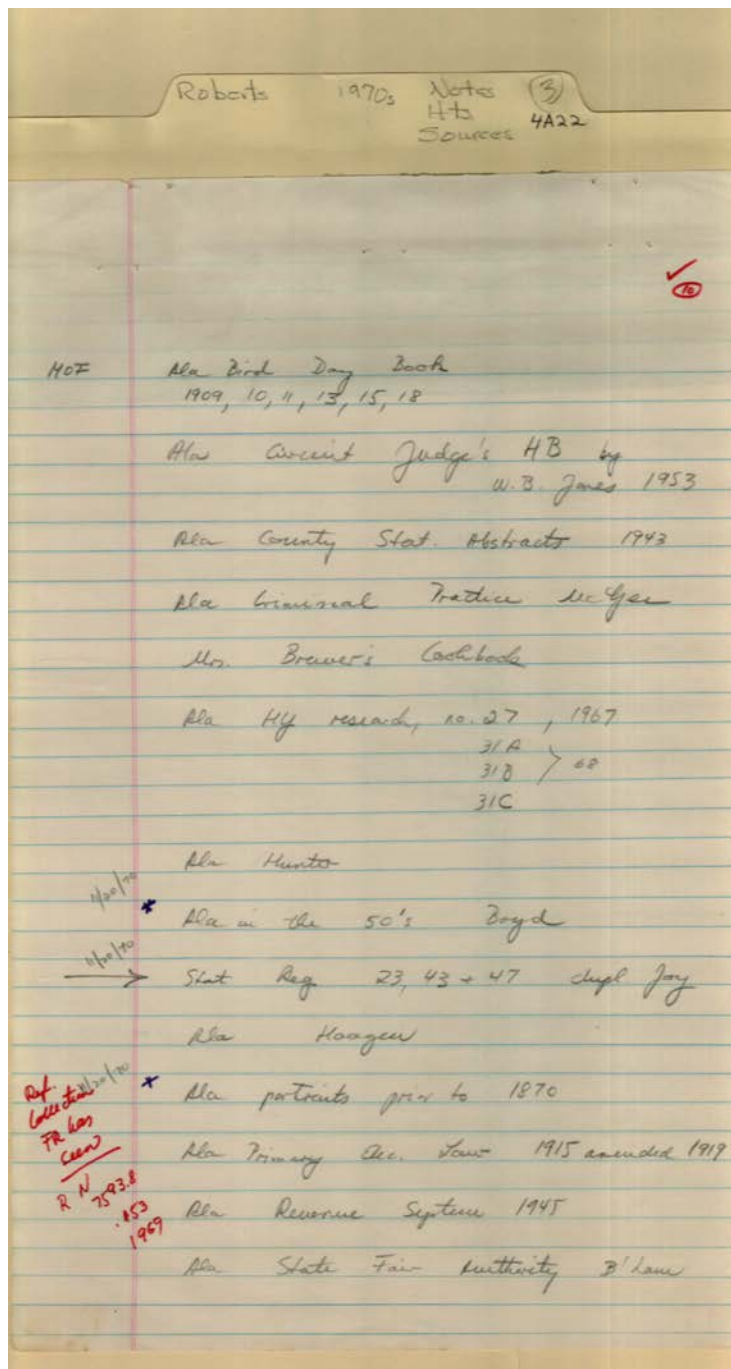 Roberts 1970s Notes 3
Hts 4A22
Sources
✓
10
HOF Ala Bird Day Book
1909, 10, 11, 13, 15, 18
Ala Circuit Judge's HB by
W.B. Jones 1953
Ala County Stat. Abstracts 1943
Ala Criminal Practice McGee
Mrs. Brewer's Cookbook
Ala HY research, no. 27, 1967
31A
31B } 68
31C
Ala Hunter
11/20/70
* Ala in the 50's Boyd
11/20/70
→ Stat Reg 23, 43 + 47 dupl Joy
Ala
11/20/70 * Ala portraits prior to 1870
Ref.
Collection
FR has
seen
R N
7593.8
.A53
1969
Ala Primary Elec. Law 1915 amended 1919
Ala Revenue System 1945
Ala State Fair Authority B'Law